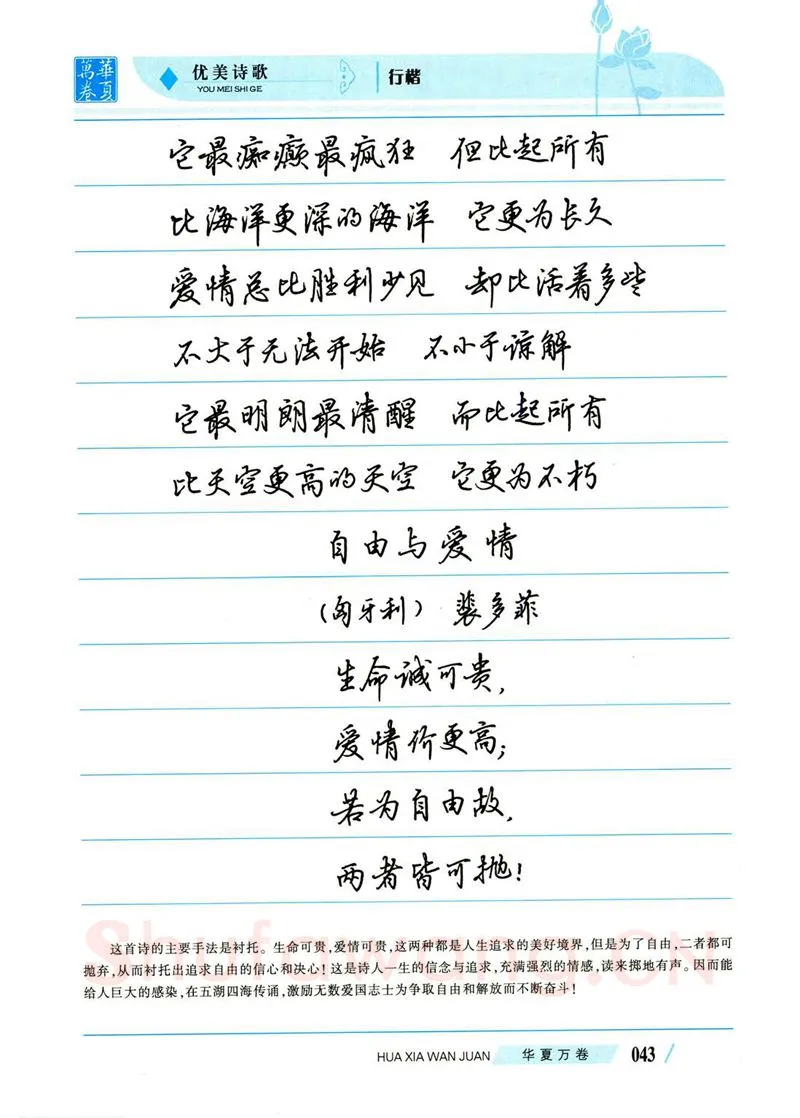 華夏萬卷
优美诗歌
YOU MEI SHI GE
行楷
它最痴癫最疯狂 但比起所有
比海洋更深的海洋 它更为长久
爱情总比胜利少见 却比活着多些
不大于无法开始 不小于谅解
它最明朗最清醒 而比起所有
比天空更高的天空 它更为不朽
自由与爱情
(匈牙利) 裴多菲
生命诚可贵,
爱情价更高;
若为自由故,
两者皆可抛!
这首诗的主要手法是衬托。生命可贵,爱情可贵,这两种都是人生追求的美好境界,但是为了自由,二者都可
抛弃,从而衬托出追求自由的信心和决心!这是诗人一生的信念与追求,充满强烈的情感,读来掷地有声。因而能
给人巨大的感染,在五湖四海传诵,激励无数爱国志士为争取自由和解放而不断奋斗!
Shufawang.CN
HUA XIA WAN JUAN
华夏万卷
043